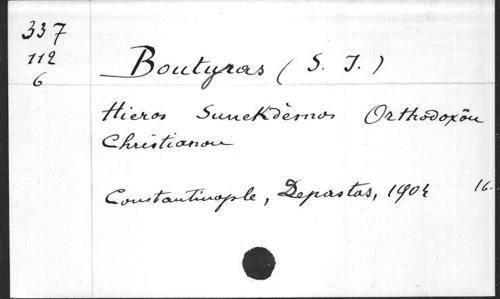 337
112
6
Boutyras (S. J.)
Hieros Sunekdèmos Orthodoxôn
Christianou
Constantinople, Depastas, 1904 16.